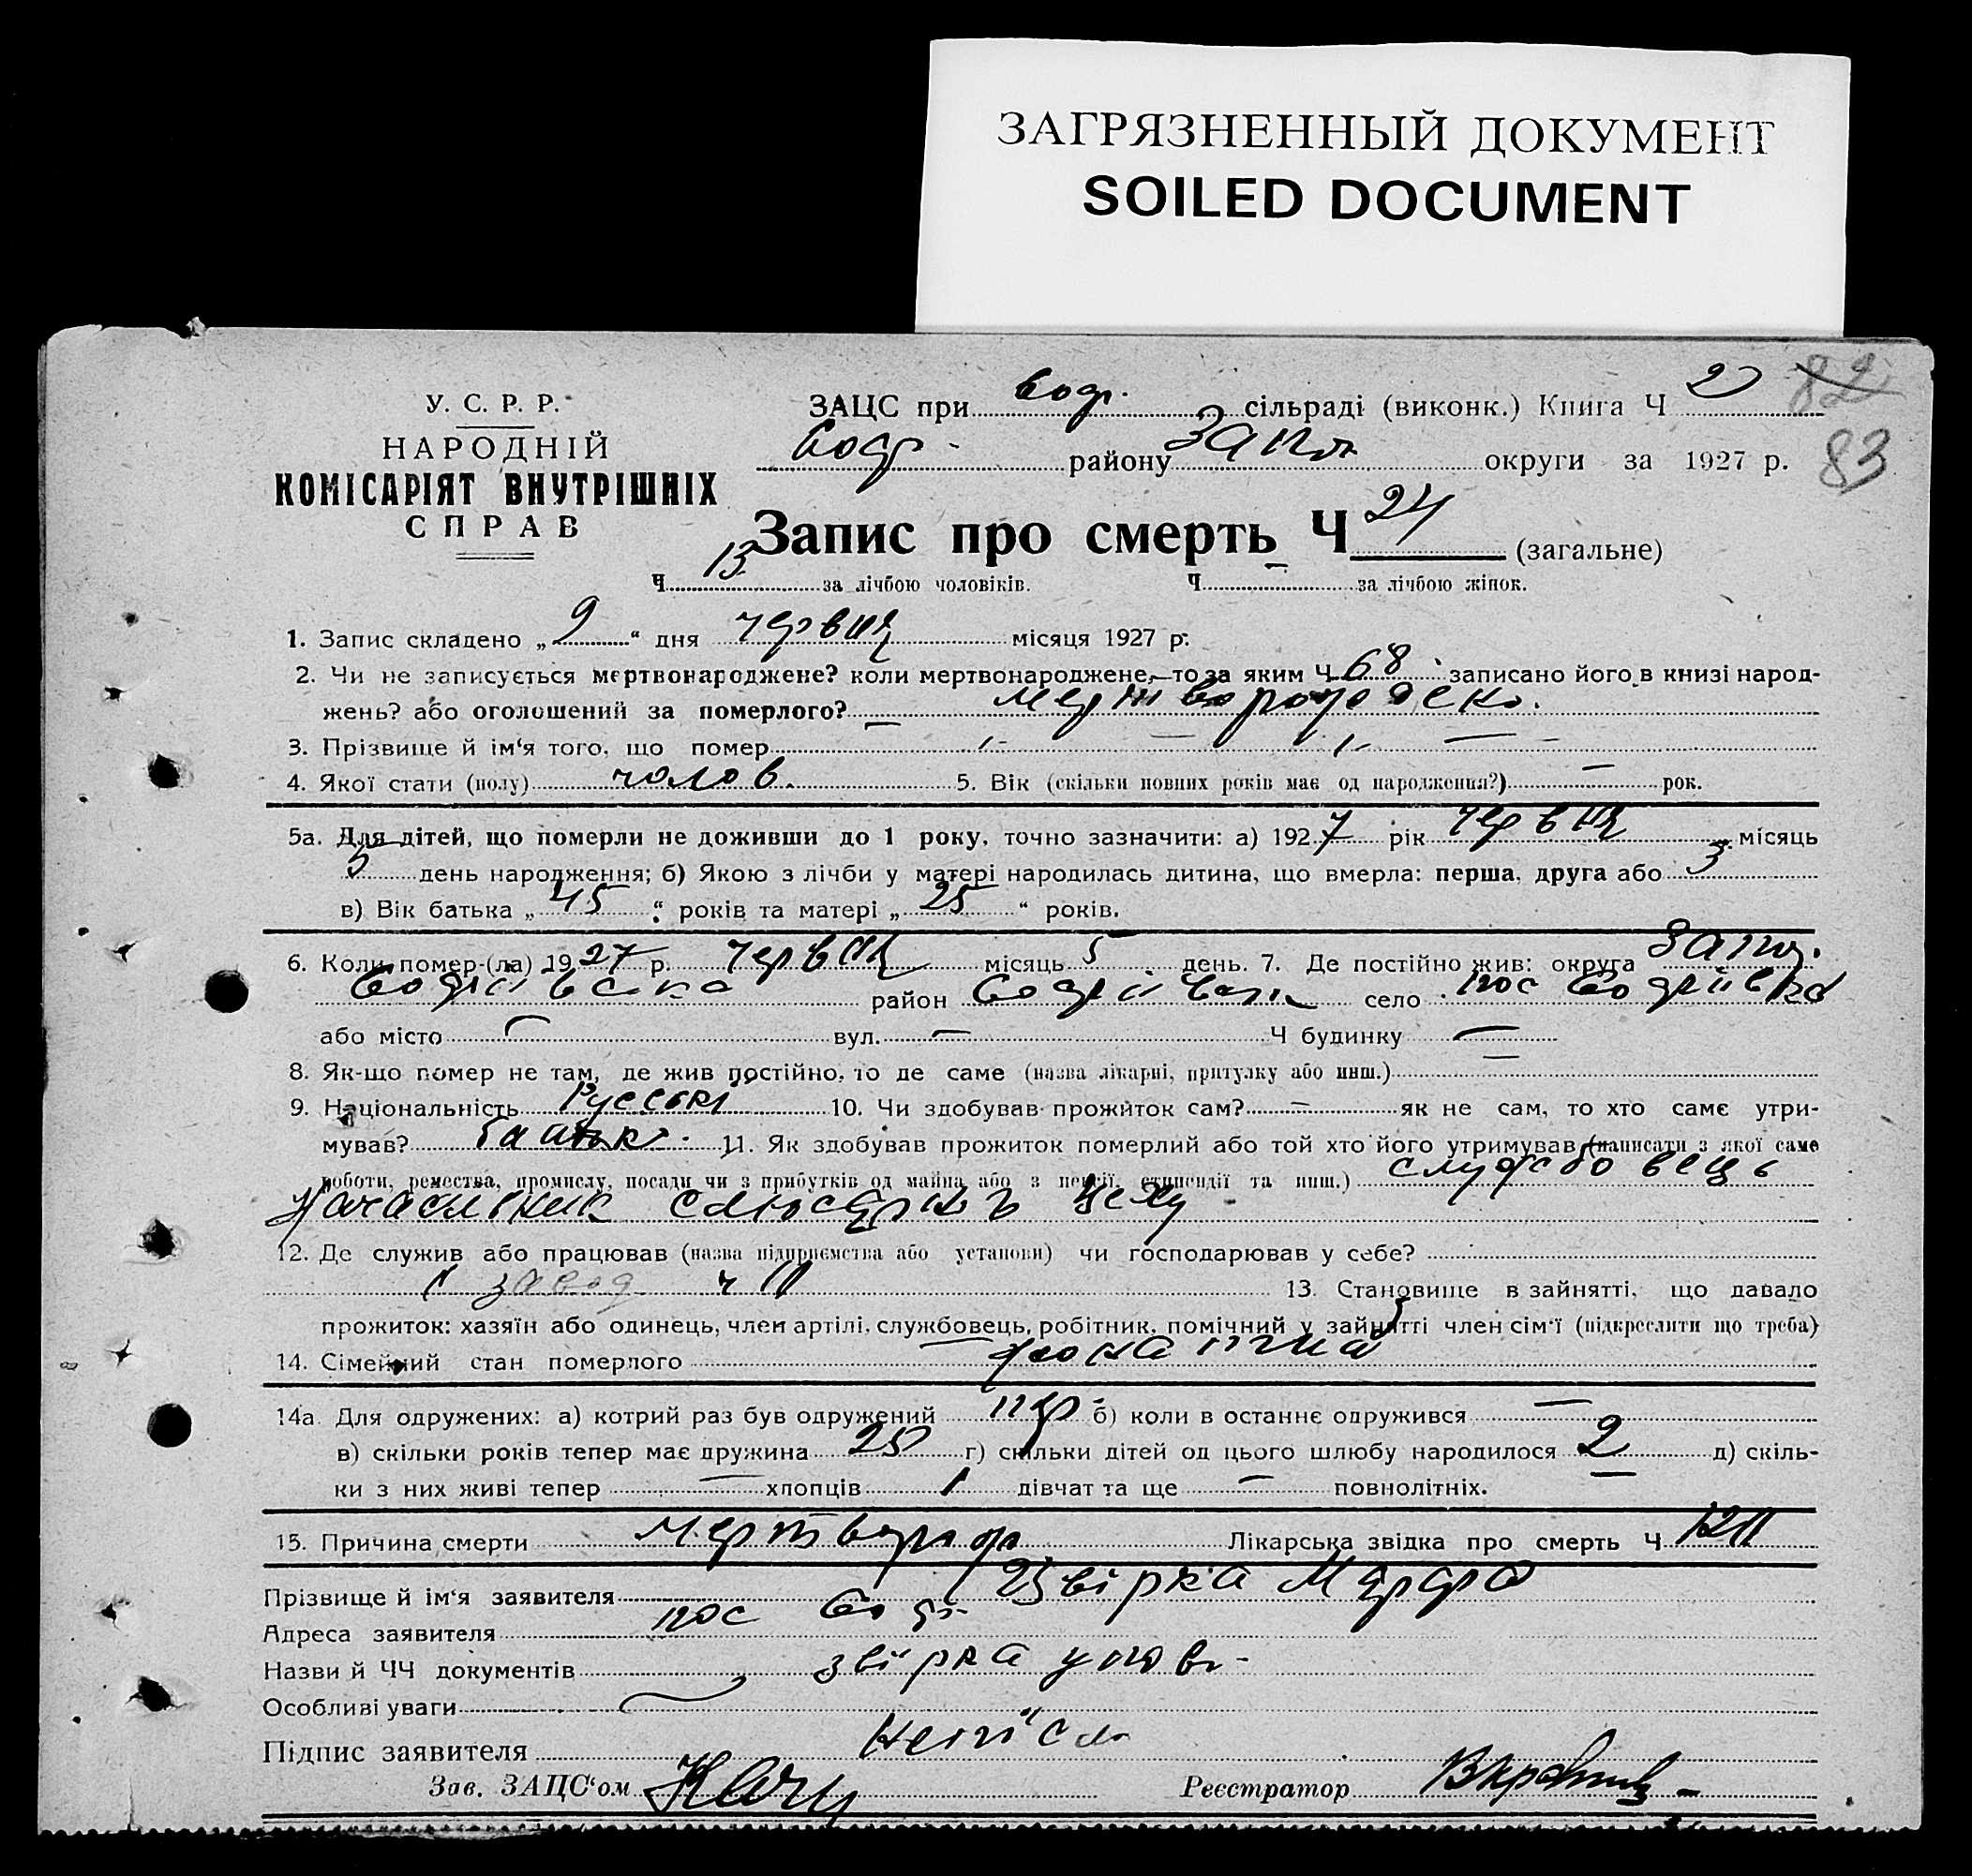 ЗАГРЯЗНЕННЫЙ ДОКУМЕНТ
SOILED DOCUMENT
82
83
У. С. Р. Р.
НАРОДНІЙ
КОМІСАРІЯТ ВНУТРІШНІХ
СПРАВ
ЗАЦС при Софі. сільраді (виконк.) Книга Ч 2
Софі. району Запо округи за 1927 р.
Запис про смерть Ч 24 (загальне)
Ч 13 за лічбою чоловіків. Ч — за лічбою жінок.
1. Запис складено „9“ дня червня місяця 1927 р.
2. Чи не записується мертвонароджене? коли мертвонароджене, то за яким Ч 68 записано його в книзі народ-
жень? або оголошений за померлого? —
3. Прізвище й ім‘я того, що помер —
4. Якої стати (полу) чолов. 5. Вік (скільки повних років має од народження?) — рок.
5а. Для дітей, що померли не доживши до 1 року, точно зазначити: а) 1927 рік червня місяць
5 день народження; б) Якою з лічби у матері народилась дитина, що вмерла: перша, друга або 3
в) Вік батька „45“ років та матері „25“ років.
6. Коли помер-(ла) 1927 р. червня місяць 5 день. 7. Де постійно жив: округа Запо.
Софіівська район Софіівськ село пос Софіівка
або місто — вул. — Ч будинку —
8. Як-що помер не там, де жив постійно, то де саме (назва лікарні, притулку або инш.) —
9. Національність Русські 10. Чи здобував прожиток сам? — як не сам, то хто саме утри-
мував? батько. 11. Як здобував прожиток померлий або той хто його утримував (написати з якої саме
роботи, ремества, промислу, посади чи з прибутків од майна або з пенсії, стипендії та инш.) службовець
Начальник цеху
12. Де служив або працював (назва підприємства або установи) чи господарював у себе?
завод
13. Становище в зайнятті, що давало
прожиток: хазяїн або одинець, член артілі, службовець, робітник, помічний у зайнятті член сім‘ї (підкреслити що треба)
14. Сімейний стан померлого
14а. Для одружених: а) котрий раз був одружений пер б) коли в останнє одружився —
в) скільки років тепер має дружина 25 г) скільки дітей од цього шлюбу народилося 2 д) скіль-
ки з них живі тепер — хлопців 1 дівчат та ще — повнолітніх. —
15. Причина смерти мертворож Лікарська звідка про смерть Ч
Прізвище й ім‘я заявителя
Адреса заявителя пос Соф
Назви й ЧЧ документів
Особливі уваги
Підпис заявителя
Зав. ЗАЦС‘ом Реєстратор